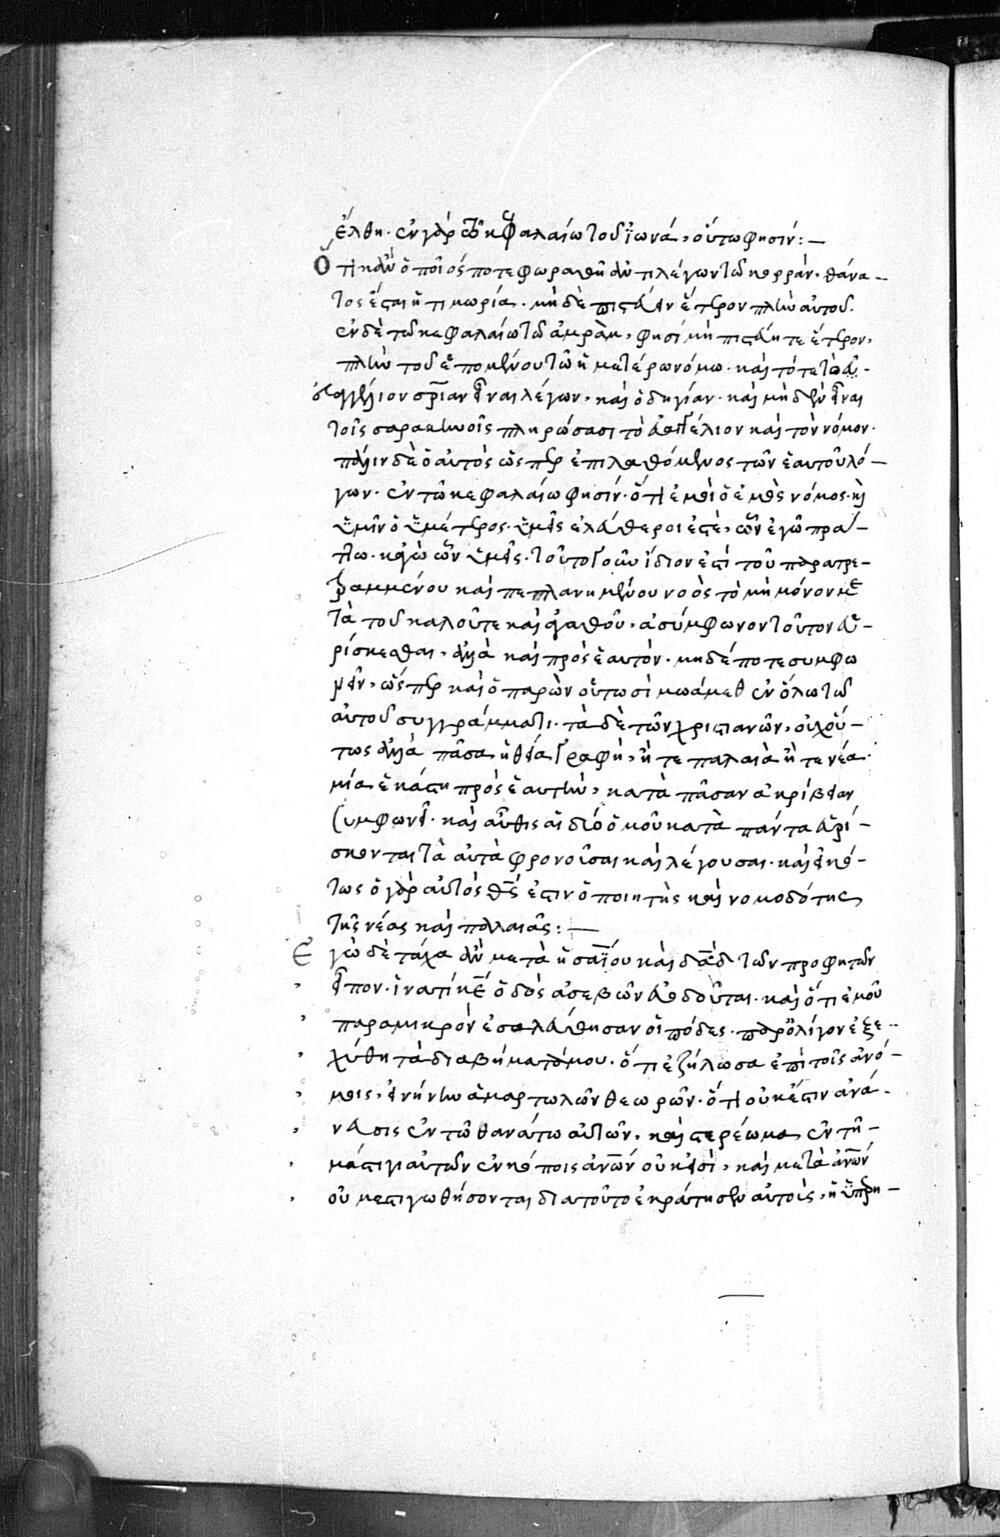 ἔλθῃ· ἐν γὰρ τῷ κεφαλαίῳ τοῦ ἰωνᾶ, οὕτω φησίν:—
Ὅτι κἂν ὁποῖός ποτε φωραθῇ ἀντιλέγων τῷ κορρὰν· θάνα—
τος ἔσται ἡ τιμωρία· μὴ δὲ πιστεύειν ἕτερον πλὴν αὐτοῦ·
ἐν δὲ τῷ κεφαλαίῳ τῷ ἀμρὰμ, φησί μὴ πιστεύητε ἕτερον,
πλὴν τοῦ ἑπομένου τῷ ἡμετέρῳ νόμῳ· καὶ τότε τὸ εὐ—
αγγέλιον σωτηρίαν εἶναι λέγων, καὶ ὁδηγίαν· καὶ μηδὲν εἶναι
τοῖς σαρακηνοῖς πληρώσασι τὸ εὐαγγέλιον καὶ τὸν νόμον·
πάλιν δὲ ὁ αὐτὸς ὥσπερ ἐπιλαθόμενος τῶν ἑαυτοῦ λό—
γων· ἐν τῷ κεφαλαίῳ φησίν· ὅτι ἐμοὶ ὁ ἐμὸς νόμος· καὶ
ὑμῖν ὁ ὑμέτερος· ὑμεῖς ἐλεύθεροι ἐστὲ, ὧν ἐγὼ πράτ—
τω· κἀγὼ ὧν ὑμεῖς· τοῦτο γοῦν ἴδιον ἐστὶ τοῦ παρατε—
τραμμένου καὶ πεπλανημένου νοὸς τὸ μὴ μόνον με
τὰ τοῦ καλοῦ τε καὶ ἀγαθοῦ, ἀσύμφωνον τοῦτον εὑ—
ρίσκεσθαι, ἀλλὰ καὶ πρὸς ἑαυτὸν· μηδέποτε συμφω
νεῖν, ὥσπερ καὶ ὁ παρὼν οὑτωσὶ μωάμεθ ἐν ὅλῳ τῷ
αὐτοῦ συγγράμματι· τὰ δὲ τῶν χριστιανῶν, οὐχ οὕ—
τως ἀλλὰ πᾶσα ἡ θεία γραφὴ, ἥ τε παλαιὰ ἥ τε νέα·
μία ἑκάστη πρὸς ἑαυτὴν, κατὰ πᾶσαν ἀκρίβειαν
συμφωνεῖ· καὶ αὖθις αἱ δύο ὁμοῦ κατὰ πάντα εὑρί—
σκονται τὰ αὐτὰ φρονοῦσαι καὶ λέγουσαι· καὶ εἰκό—
τως ὁ γὰρ αὐτός θεός ἐστιν ὁ ποιητὴς καὶ νομοδότης
τῆς νέας καὶ παλαιᾶς:—
Ἐγὼ δὲ τάχα ἂν μετὰ ἡσαΐου καὶ δαδ τῶν προφητῶν
εἶπον· ἱνατί κε ὁδὸς ἀσεβῶν εὐοδοῦται· καὶ ὅτι ἐμοῦ
παραμικρὸν ἐσαλεύθησαν οἱ πόδες· παρ᾽ ὀλίγον ἐξε—
χύθη τὰ διαβήματά μου· ὅτι ἐζήλωσα ἐπὶ τοῖς ἀνό—
μοις, εἰρήνην ἁμαρτωλῶν θεωρῶν· ὅτι οὐκ ἔστιν ἀνά—
νευσις ἐν τῷ θανάτῳ αὐτῶν, καὶ στερέωμα ἐν τῇ—
μάστιγι αὐτῶν ἐν κόποις ἀνων οὐκ εἰσὶ, καὶ μετὰ ἀνων
οὐ μαστιγωθήσονται διατοῦτο ἐκράτησεν αὐτοὺς, ἡ ὑπερη—